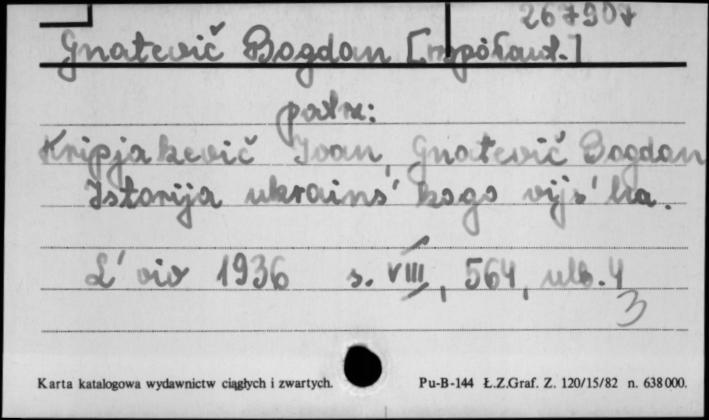 267907
Gnatevič Bogdan [współaut.]
patrz:
Kripjakevič Ivan, Gnatevič Bogdan
Istorija ukrains'kogo vijs'ka.
L'viv 1936 s. VIII, 564, ulb. 4
3
Karta katalogowa wydawnictw ciągłych i zwartych. Pu-B-144 Ł.Z.Graf. Z. 120/15/82 n. 638000.